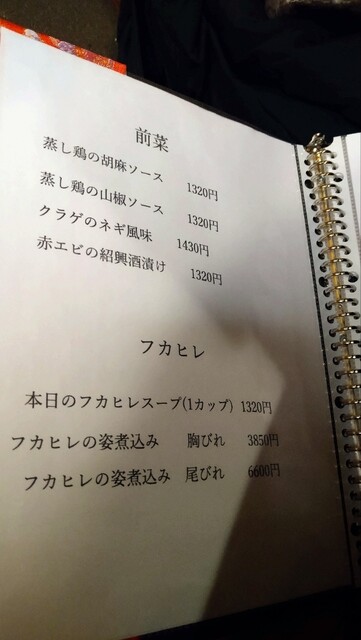 前菜
蒸し鶏の胡麻ソース 1320円
蒸し鶏の山椒ソース 1320円
クラゲのネギ風味 1430円
赤エビの紹興酒漬け 1320円
フカヒレ
本日のフカヒレスープ(1カップ) 1320円
フカヒレの姿煮込み 胸びれ 3850円
フカヒレの姿煮込み 尾びれ 6600円